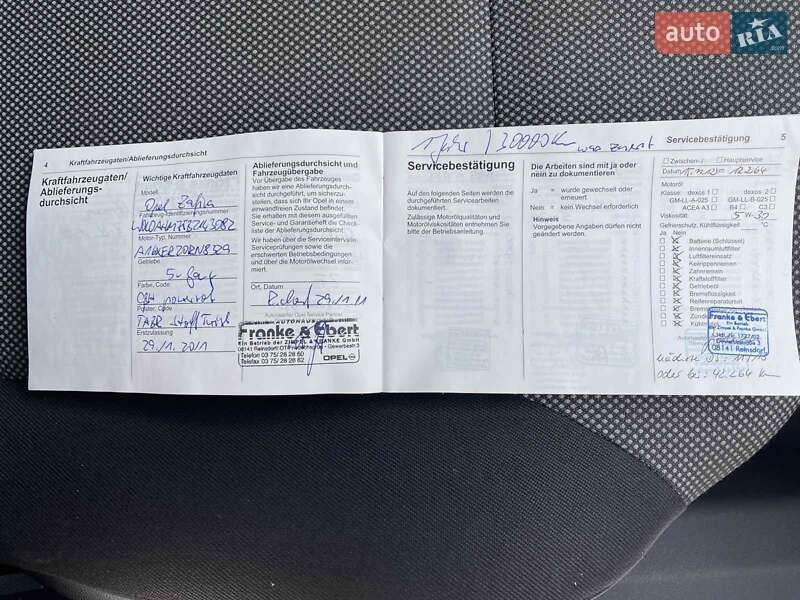 auto RIA.com
4 Kraftfahrzeugdaten/Ablieferungsdurchsicht
Kraftfahrzeugdaten/
Ablieferungs-
durchsicht
Wichtige Kraftfahrzeugdaten
Modell
Opel Zafira
Fahrzeug-Identifizierungsnummer
Motor-Typ, Nummer
Getriebe
5-Gang
Farbe, Code
Polster, Code
Erstzulassung
29.11.2011
Ablieferungsdurchsicht und
Fahrzeugübergabe
Vor Übergabe des Fahrzeuges
haben wir eine Ablieferungsdurch-
sicht durchgeführt, um sicherzu-
stellen, dass Ihr Opel in einem
einwandfreien Zustand befindet.
Sie erhalten mit diesem ausgefüllten
Service- und Garantieheft die Check-
liste der Ablieferungsdurchsicht.
Wir haben über die Serviceintervalle,
Serviceprüfungen sowie die
erschwerten Betriebsbedingungen
und über die Motorölwechsel infor-
miert.
Ort, Datum
29.11.11
AUTOHAUS
Franke & Ebert
Ein Betrieb der ZIMPEL & FRANKE GmbH
Telefon 03 75/28 28 60
Telefax 03 75/28 28 62
OPEL
1 Jahr / 30000 Km was zuerst
Servicebestätigung 5
Servicebestätigung
Auf den folgenden Seiten werden die
durchgeführten Servicearbeiten
dokumentiert.
Zulässige Motorölqualitäten und
Motorölviskositäten entnehmen Sie
bitte der Betriebsanleitung.
Die Arbeiten sind mit ja oder
nein zu dokumentieren
Ja = wurde gewechselt oder
erneuert.
Nein = kein Wechsel erforderlich
Hinweis
Vorgegebene Angaben dürfen nicht
geändert werden.
Zwischen-/ Hauptservice
Datum 12264
Motoröl
Klasse: dexos 1 dexos 2
GM-LL-A-025 GM-LL-B-025
ACEA A3 B4 C3
Viskosität: 5W-30
Gefrierschutz, Kühlflüssigkeit °C
Ja Nein
Batterie (Schlüssel)
Innenraumluftfilter
Luftfiltereinsatz
Keilrippenriemen
Zahnriemen
Kraftstofffilter
Getriebeöl
Bremsflüssigkeit
Reifenreparaturset
Franke & Ebert
08141 Reinsdorf
nächste
oder bei: 42.264 Km